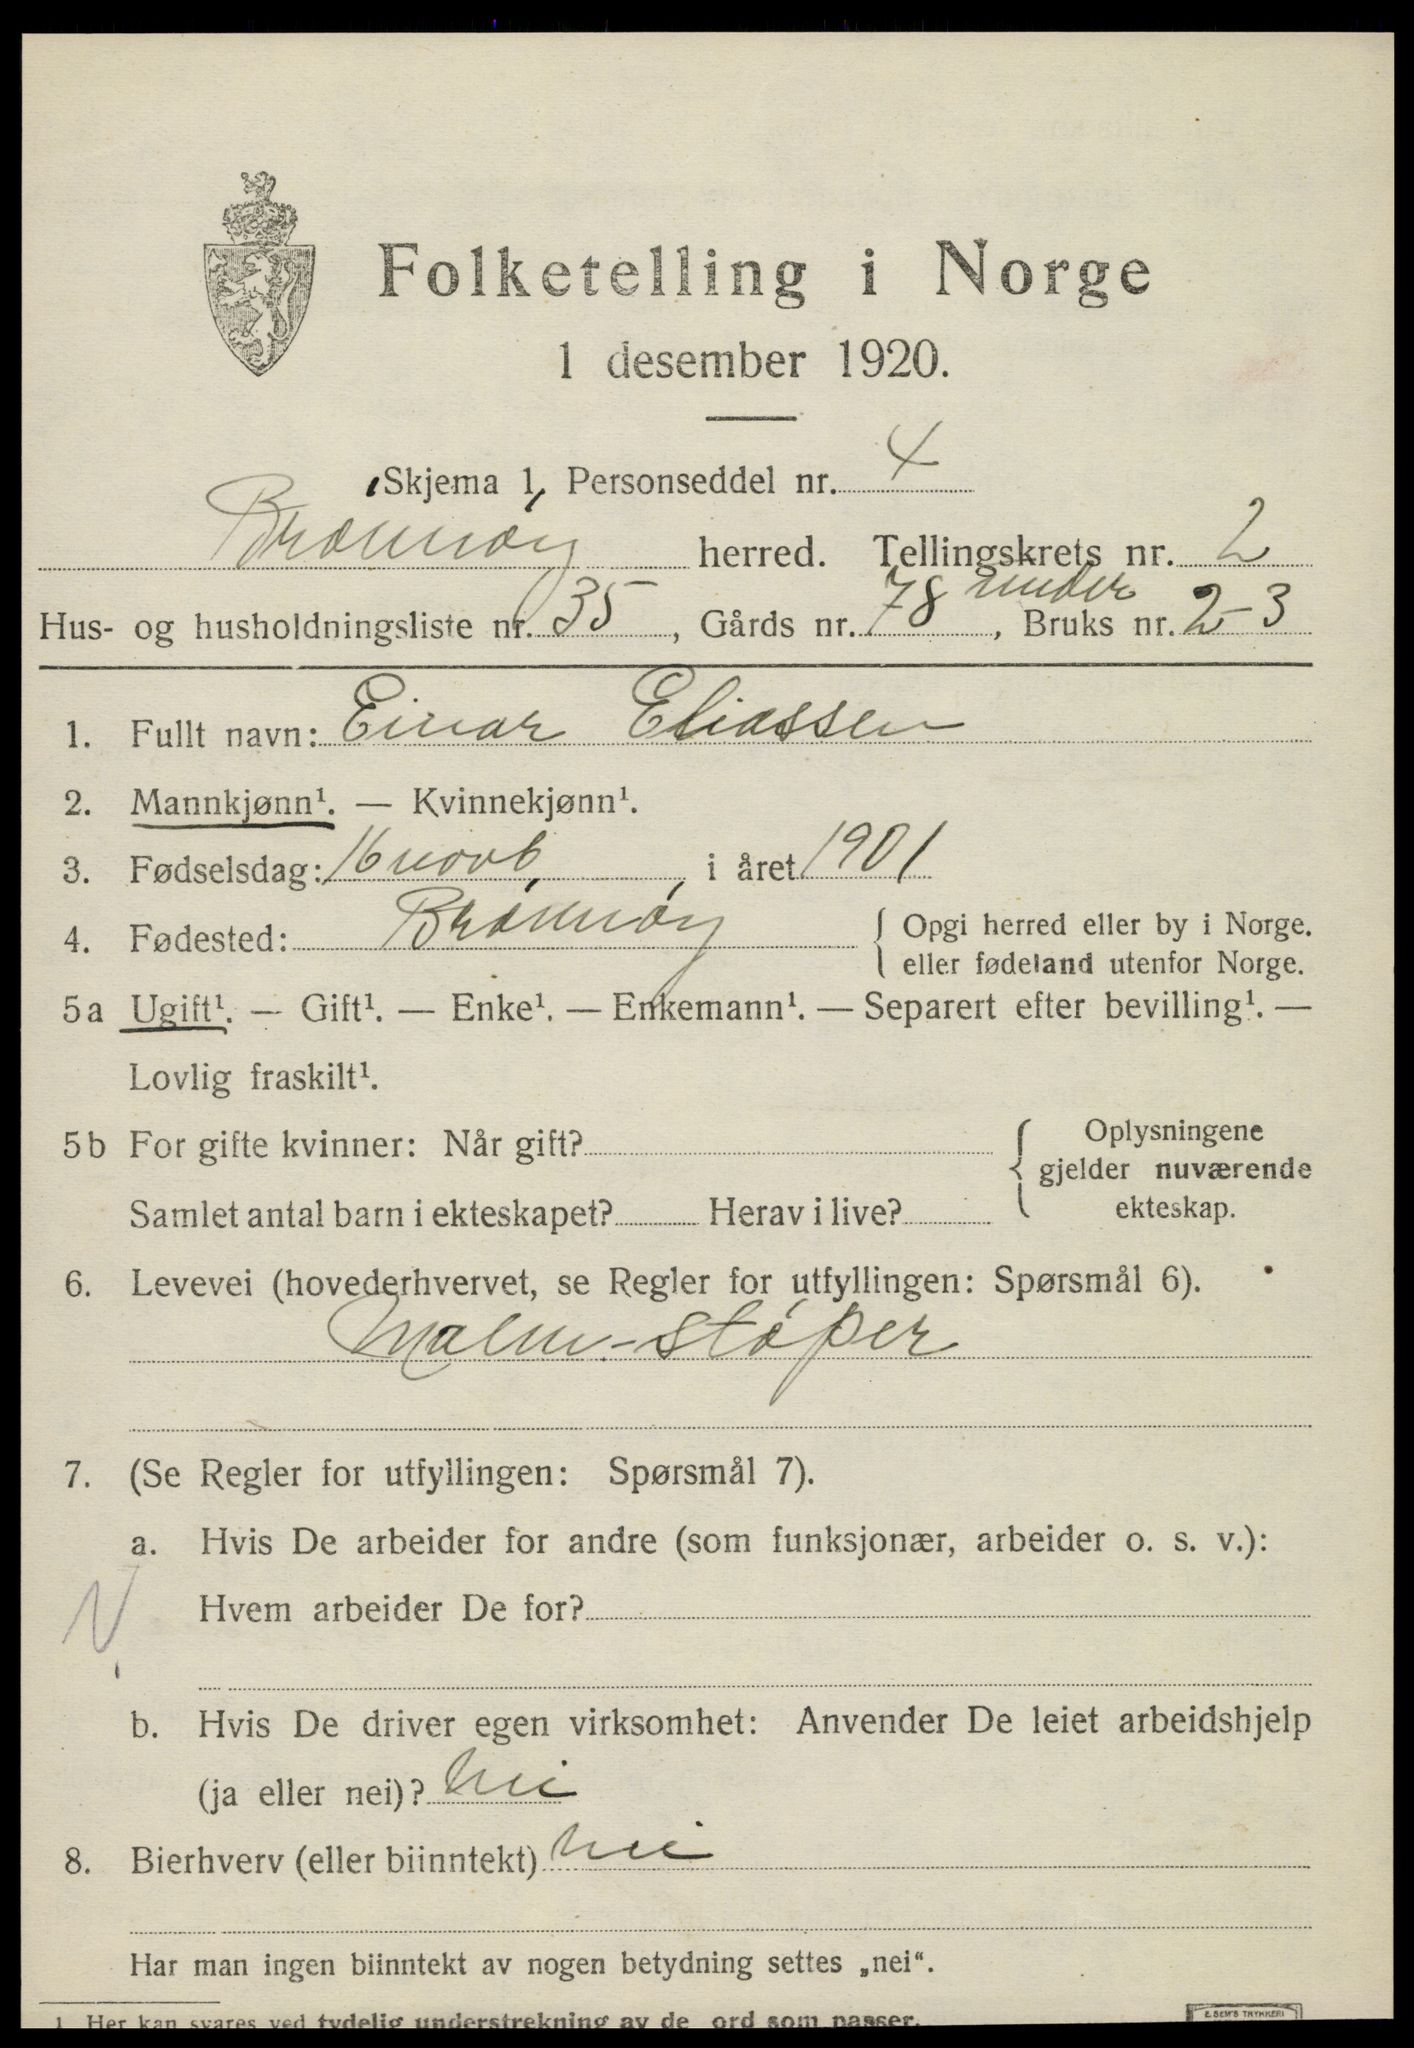 Folketelling i Norge
1 desember 1920.
Skjema 1, Personseddel nr. 4
Brønnøy herred. Tellingskrets nr. 2
Hus- og husholdningsliste nr. 35, Gårds nr. 78 under, Bruks nr. 2-3
1. Fullt navn: Einar Eliassen
2. Mannkjønn¹. — Kvinnekjønn¹.
3. Fødselsdag: 16 novb, i året 1901
4. Fødested: Brønnøy { Opgi herred eller by i Norge.
eller fødeland utenfor Norge.
5a Ugift¹. — Gift¹. — Enke¹. — Enkemann¹. — Separert efter bevilling¹. —
Lovlig fraskilt¹.
5b For gifte kvinner: Når gift? { Oplysningene
gjelder nuværende
Samlet antal barn i ekteskapet? Herav i live? ekteskap.
6. Levevei (hovederhvervet, se Regler for utfyllingen: Spørsmål 6).
Malm-støper
7. (Se Regler for utfyllingen: Spørsmål 7).
a. Hvis De arbeider for andre (som funksjonær, arbeider o. s. v.):
Hvem arbeider De for?
b. Hvis De driver egen virksomhet: Anvender De leiet arbeidshjelp
(ja eller nei)? nei
8. Bierhverv (eller biinntekt) nei
Har man ingen biinntekt av nogen betydning settes „nei“.
1 Her kan svares ved tydelig understrekning av de ord som passer.
E. SEM'S TRYKKERI